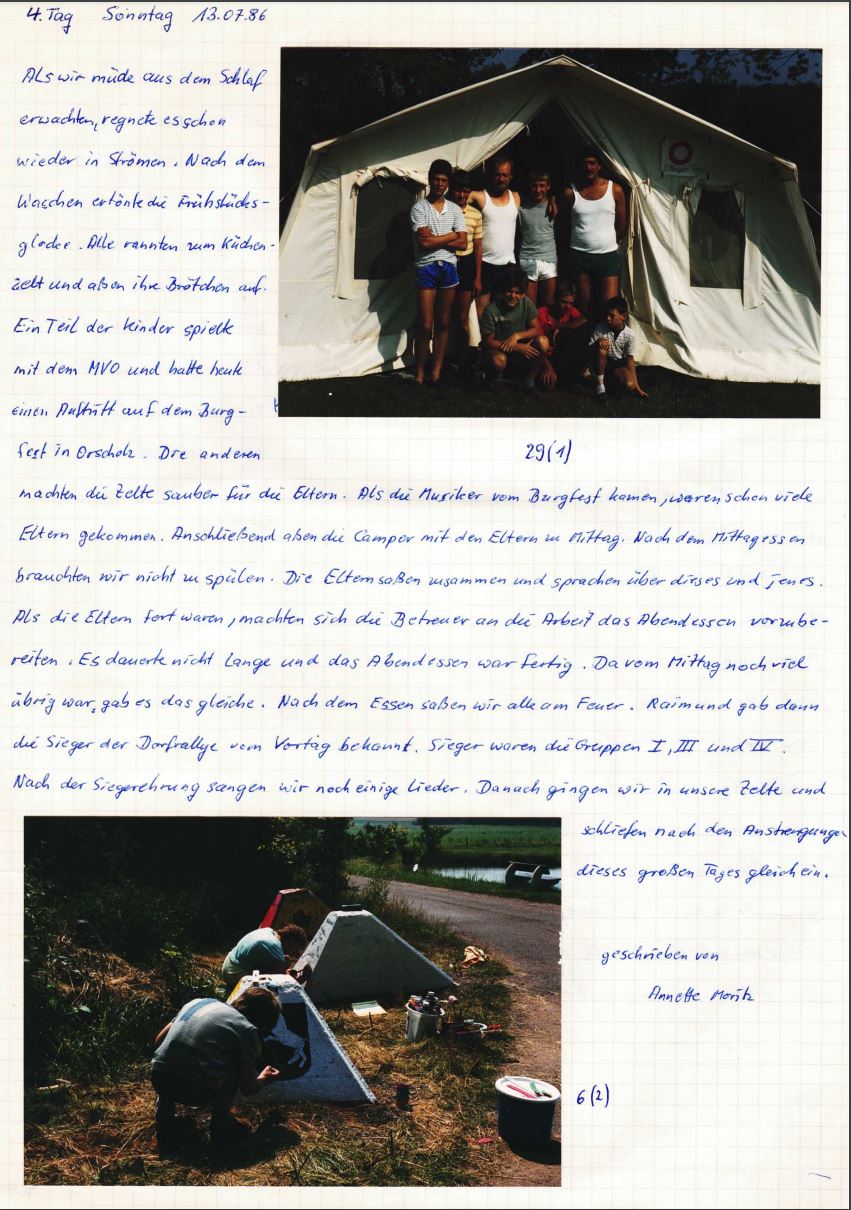 4. Tag Sonntag 13.07.86
Als wir müde aus dem Schlaf
erwachten, regnete es schon
wieder in Strömen. Nach dem
Waschen ertönte die Frühstücks-
glocke. Alle rannten zum Küchen-
zelt und aßen ihre Brötchen auf.
Ein Teil der Kinder spielte
mit dem MVO und hatte heute
einen Auftritt auf dem Burg-
fest in Orscholz. Die anderen
29(1)
machten die Zelte sauber für die Eltern. Als die Musiker vom Burgfest kamen, waren schon viele
Eltern gekommen. Anschließend aßen die Camper mit den Eltern zu Mittag. Nach dem Mittagessen
brauchten wir nicht zu spülen. Die Eltern saßen zusammen und sprachen über dieses und jenes.
Als die Eltern fort waren, machten sich die Betreuer an die Arbeit das Abendessen vorzube-
reiten. Es dauerte nicht lange und das Abendessen war fertig. Da vom Mittag noch viel
übrig war, gab es das gleiche. Nach dem Essen saßen wir alle am Feuer. Raimund gab dann
die Sieger der Dorfrallye vom Vortag bekannt. Sieger waren die Gruppen I, III und IV.
Nach der Siegerehrung sangen wir noch einige Lieder. Danach gingen wir in unsere Zelte und
schliefen nach den Anstrengungen
dieses großen Tages gleich ein.
geschrieben von
Annette Moritz
6(2)